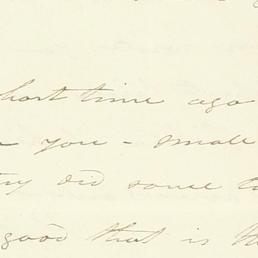 short time ago
you - small
try did some
good that is